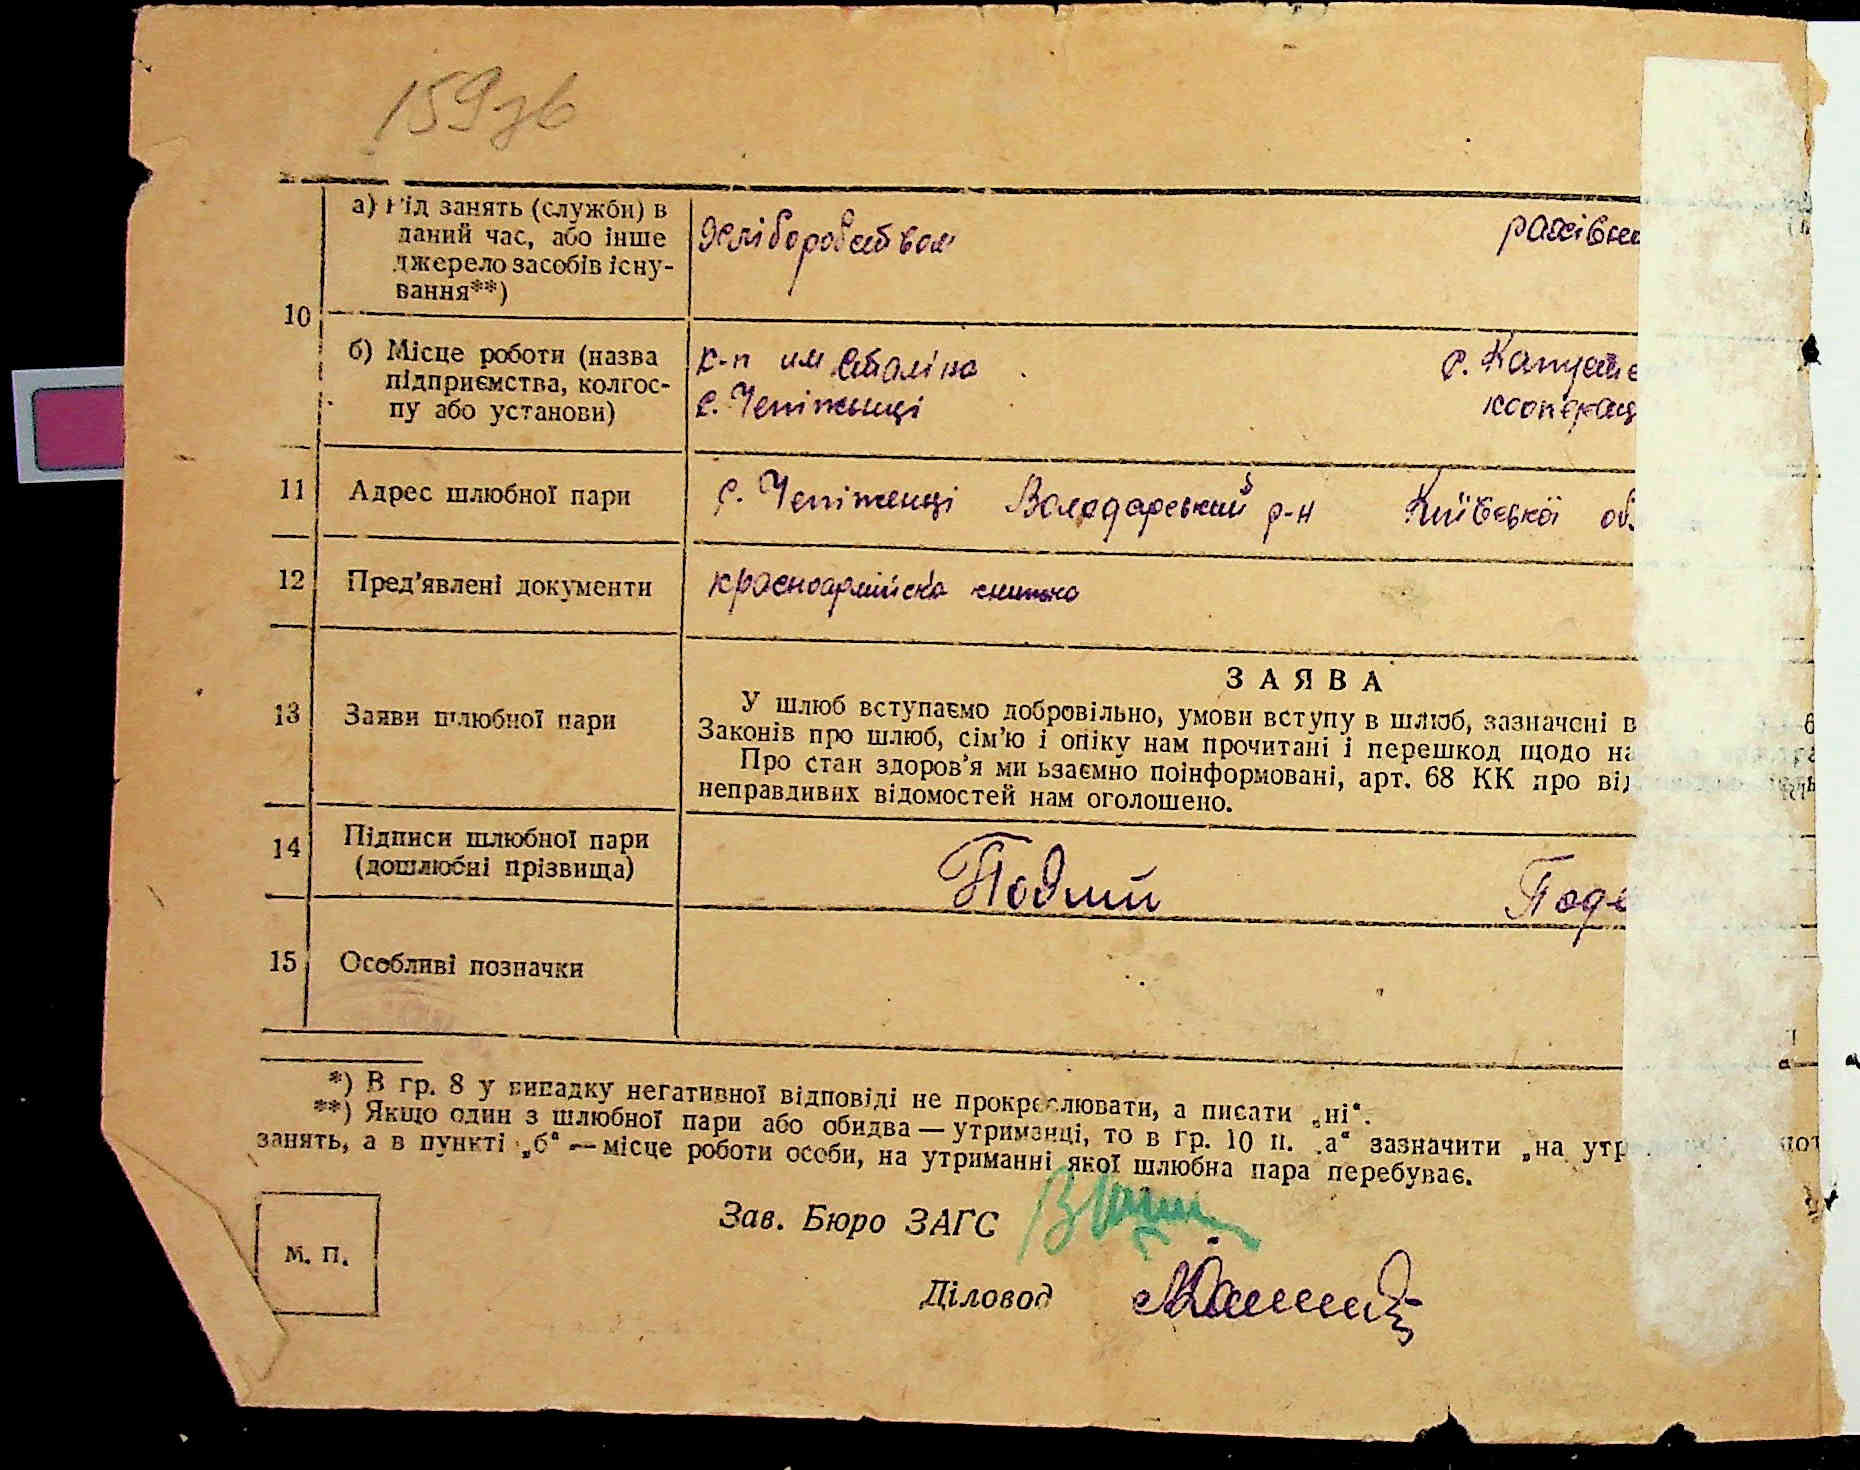 159зв
а) Рід занять (служби) в
даний час, або інше
джерело засобів існу-
вання**)
хліборобством
рахівни
10
б) Місце роботи (назва
підприємства, колгос-
пу або установи)
к-п им Сталіна
с. Чепіженці
с.
кооперац
11 Адрес шлюбної пари
с. Чепіженці Володарський р-н Київської об.
12 Пред'явлені документи
красноармійска книжка
13 Заяви шлюбної пари
ЗАЯВА
У шлюб вступаємо добровільно, умови вступу в шлюб, зазначені в
Законів про шлюб, сім'ю і опіку нам прочитані і перешкод щодо на
Про стан здоров'я ми взаємно поінформовані, арт. 68 КК про від
неправдивих відомостей нам оголошено.
14 Підписи шлюбної пари
(дошлюбні прізвища)
15 Особливі позначки
*) В гр. 8 у випадку негативної відповіді не прокреслювати, а писати „ні“.
**) Якщо один з шлюбної пари або обидва — утриманці, то в гр. 10 п. „а“ зазначити „на утр
занять, а в пункті „б“ — місце роботи особи, на утриманні якої шлюбна пара перебуває.
М. П.
Зав. Бюро ЗАГС
Діловод